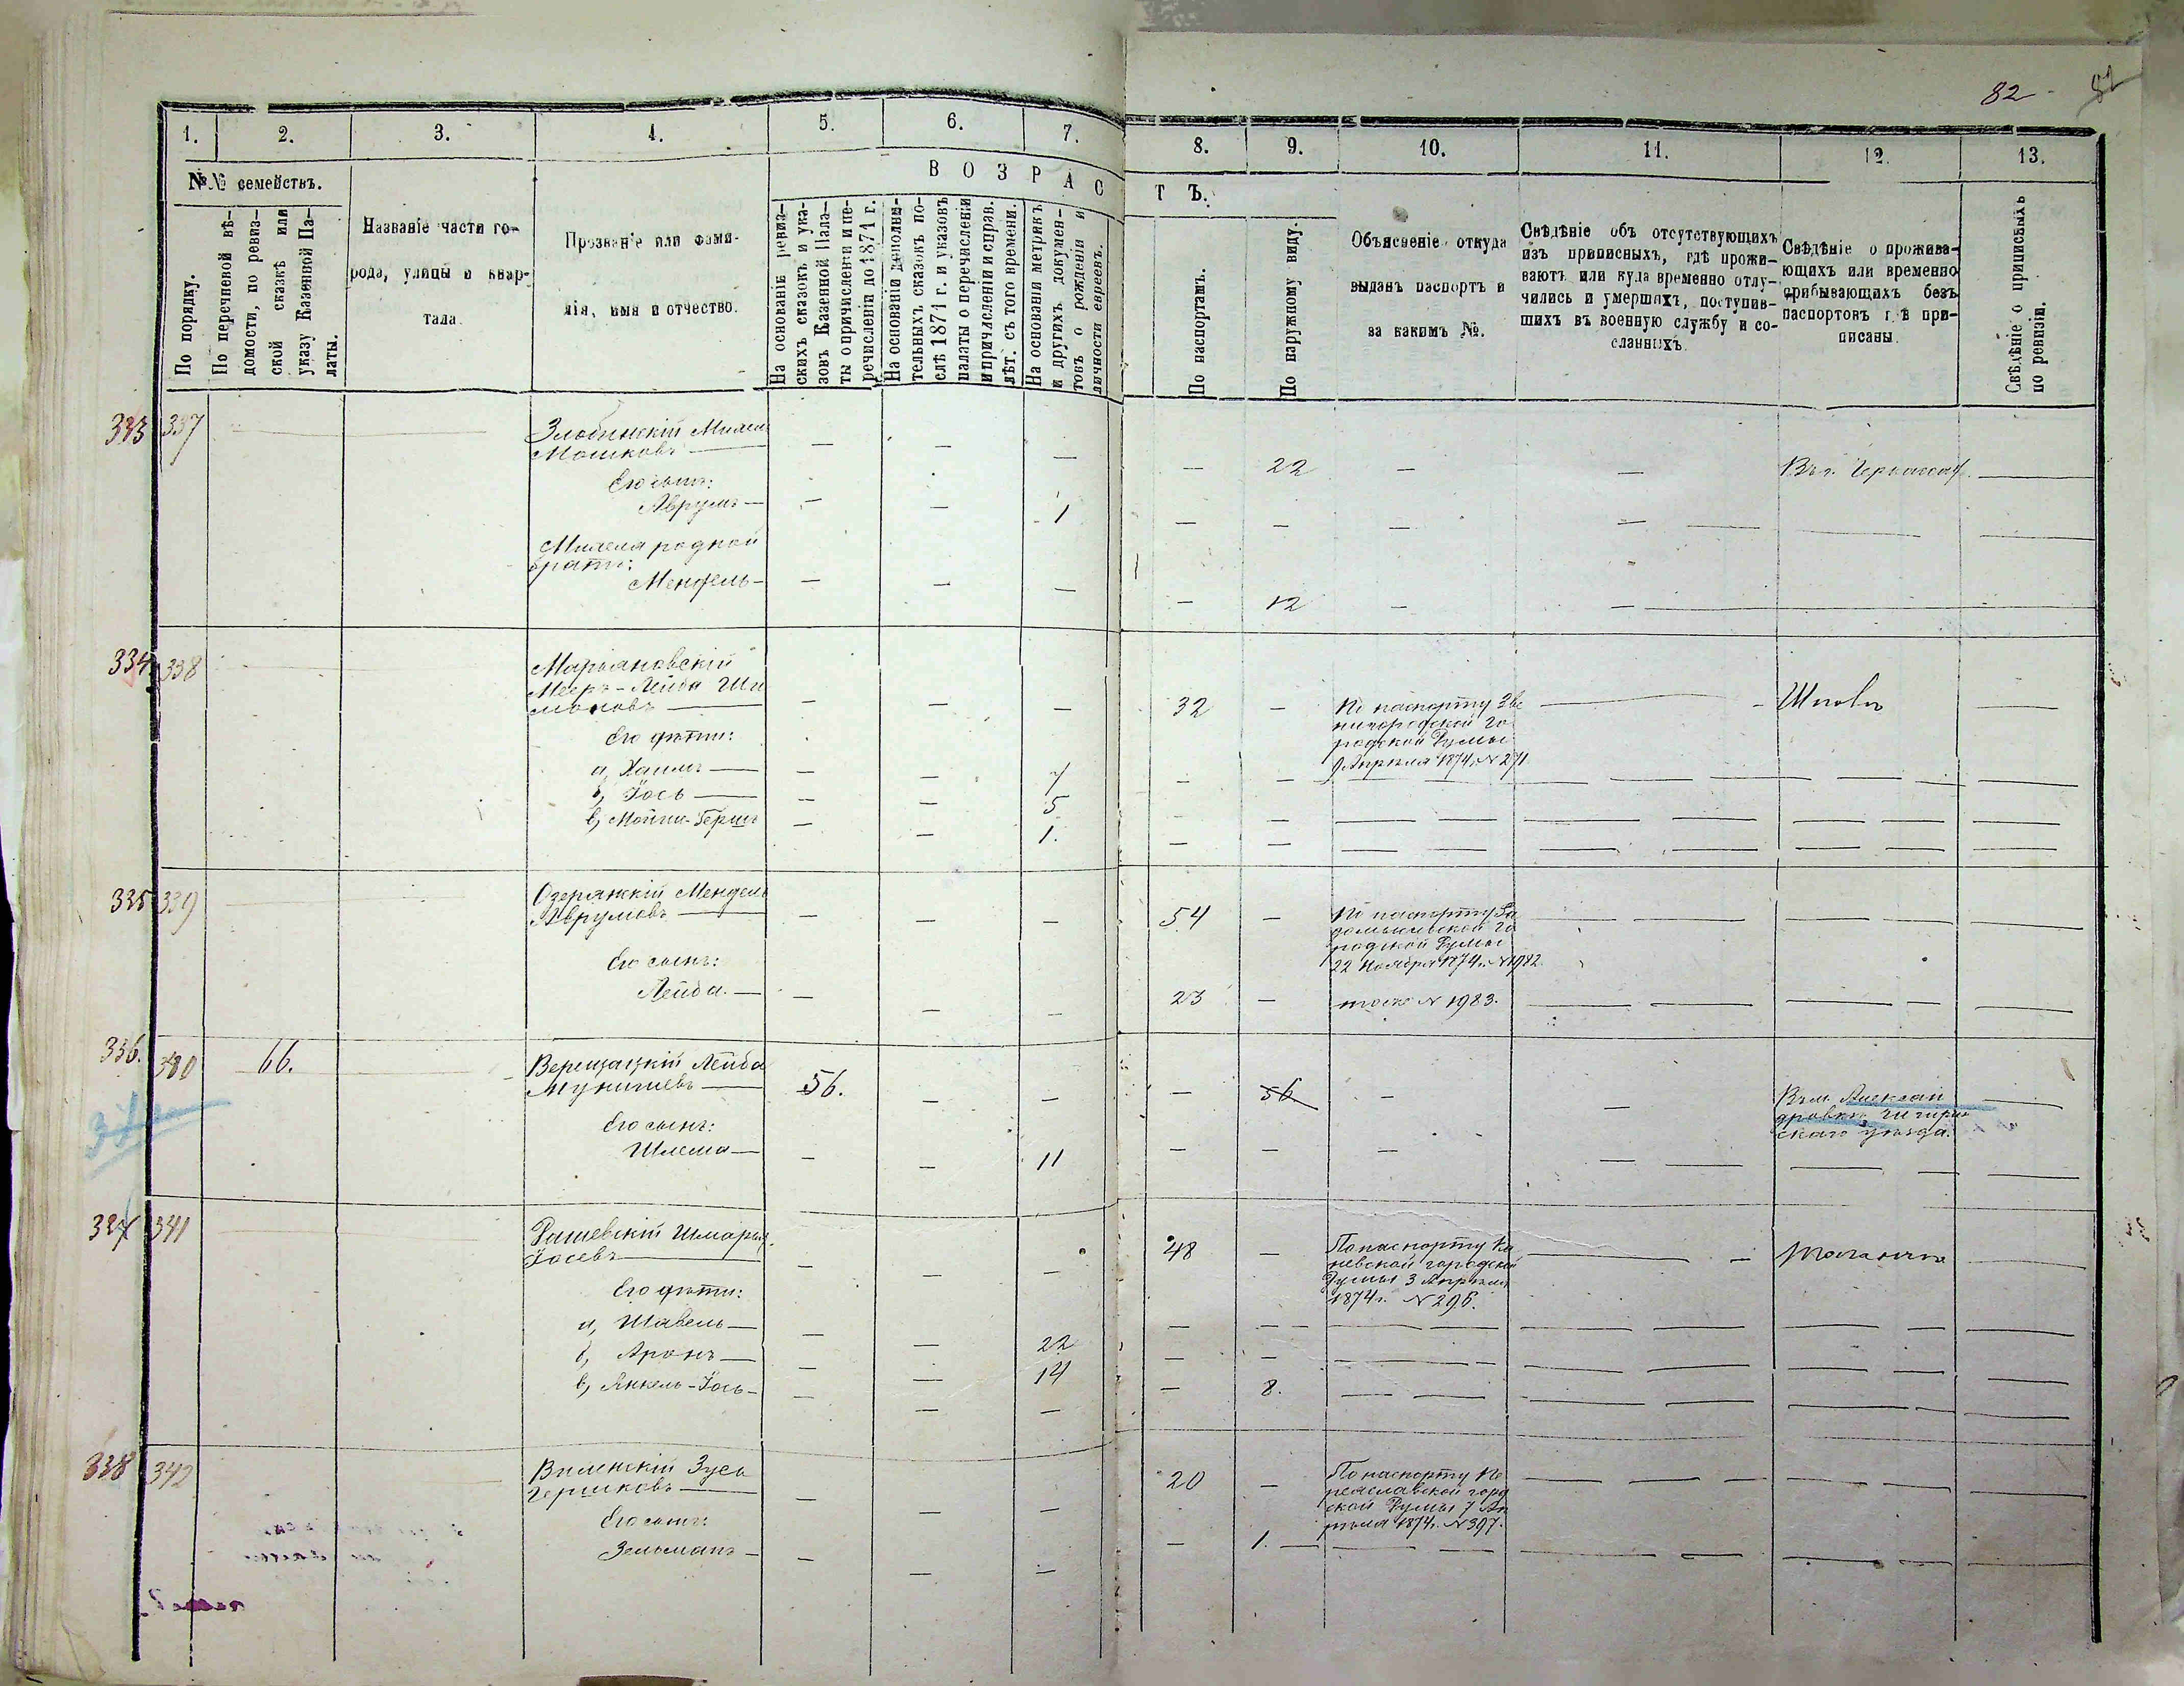 82
1. 2. 3. 4. 5. 6. 7. 8. 9. 10. 11. 12. 13.
№№ семействъ.
В О З Р А С Т Ъ.
По порядку.
По перечневой вѣ-
домости, по ревиз-
ской сказкѣ или
указу Казенной Па-
латы.
Названіе части го-
рода, улицы и квар-
тала
Прозваніе или фами-
лія, имя и отчество.
На основаніи ревиз-
скихъ сказокъ и ука-
зовъ Казенной Пала-
ты о причисленіи и пе-
речисленіи до 1871 г.
На основаніи дополни-
тельныхъ сказокъ по-
слѣ 1871 г. и указовъ
палаты о перечисленіи
и причисленіи и справ.
лѣт. съ того времени.
На основаніи метрикъ
и другихъ докумен-
товъ о рожденіи и
личности евреевъ.
По паспортамъ.
По наружному виду.
Объясненіе откуда
выданъ паспортъ и
за какимъ №.
Свѣдѣніе объ отсутствующихъ
изъ приписныхъ, гдѣ прожи-
ваютъ или куда временно отлу-
чились и умершихъ, поступив-
шихъ въ военную службу и со-
сланныхъ
Свѣдѣніе о прожива-
ющихъ или временно
прибывающихъ безъ
паспортовъ гдѣ при-
писаны.
Свѣдѣніе о приписныхъ
по ревизіи.
333 337
Злобинскій
Мошковъ — — — — 22 — —
Его сынъ:
Аврумъ — — — 1 — — — —
родной
братъ:
Мендель — — — — — 12 — —
334 338
Марьяновскій
Мееръ-Лейба Ши
моновъ — — — — 32 — По паспорту Зве
нигородской Го
родской Думы
9 Апрѣля 1874 г. N 271
Его дѣти:
а, Хаимъ — — — 7
б, Іось — — — 5
в, Мойши-Гершъ — — 1.
335 339
Озерянскій Мендель
Аврумовъ — — — — 54 — По паспорту Ра
домысльской Го
родской Думы
22 Ноября 1874 г. N 1982
Его сынъ:
Лейба. — — — — 23 — тоже N 1983.
336. 340 66.
Верещацкій Лейба
56. — — — 56 — — Въ м. Алексан
дровкѣ Чигирин
скаго уѣзда.
Его сынъ:
Шлема — — — 11 — — —
337 341
Рашевскій Шмарья
Іосевъ — — — — 48 — По паспорту Ка
невской городской
Думы 3 Апрѣля
1874 г. N 296.
Его дѣти:
а, Шавель — — — 22
б, Аронъ — — — 14
в, Янкель-Іось — — — — 8.
338 342
Виленскій Зусь
Гершковъ — — — — 20 — По паспорту Пе
реяславской город
ской Думы 7 Ап
рѣля 1874 г. N 397.
Его сынъ:
Зельманъ — — — — — 1. —